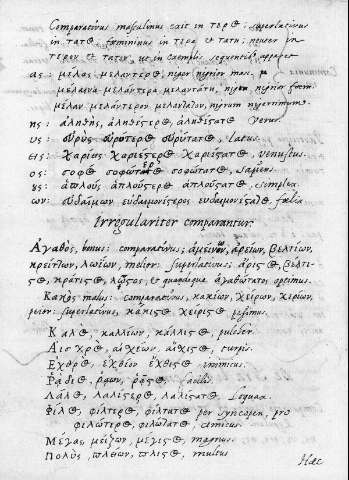 Comparativus masculinus exit in τερ⊙: superlativus
in τατ⊙, fœmininus in τερα et τατη: neutrum in
τερον et τατον, ut in exemplis sequentib. apparet
ας: μέλας, μελάντερ⊙, niger nigrior masc.
μέλαινα μελάντερα μελαντάτη, nigra nigrior fœm.
μέλαν μελάντερον μελανίατον, nigrum nigerrimum.
ης: ἀληθὴς, ἀληθέςερ⊙, ἀληθέςατ⊙ verus.
υς: ευρὺς ευρύτερ⊙ ευρύτατ⊙, latus.
εις: Χαρίεις Χαριέςερ⊙ Χαριέςατ⊙, venustus.
ος: σοφ⊙ σοφώτερ⊙ σοφώτατ⊙, sapiens
ȣς: ἁπλοῦς ἁπλούςερ⊙ ἁπλούςατ⊙, simplex.
ων: ευδαίμων ευδαιμονέςερος ευδαιμονέςατ⊙, fœlix
Irregulariter comparantur.
Αγαθὸς, bonus: comparativus; ἀμείνων, ἀρείων, βελτίων,
κρείττων, λωΐων, melior: superlativus; ἄρις⊙, βέλτι-
ς⊙, κράτις⊙, λῶςος, et quandoque ἀγαθώτατος optimus.
Κακὸς malus: comparativus, κακίων, χείρων, χερίων,
peior: superlativus, κάκις⊙ χείρις⊙ pessimus.
Καλ⊙, καλλίων, κάλλις⊙, pulcher.
Αισχρ⊙, αισχίων, αίχις⊙, turpis.
Εχθρ⊙, ἐχθίων ἔχθις⊙, inimicus.
Ράδι⊙, ῥάων, ῥᾷς⊙, facilis.
Λάλ⊙, λαλίςερ⊙, λαλίςατ⊙ loquax.
Φίλ⊙, φίλτερ⊙, φίλτατ⊙ per syncopen, pro
φιλώτερ⊙, φιλώτατ⊙, amicus.
Μέγας, μείζων, μέγις⊙, magnus.
Πολὺς, πλέων, πλῖς⊙, multus
Hæc